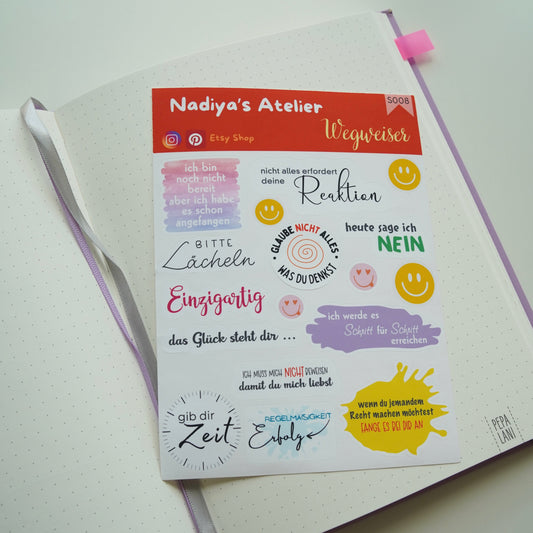 Nadiya's Atelier
S008
Etsy Shop
Wegweiser
ich bin
noch nicht
bereit
aber ich habe
es schon
angefangen
nicht alles erfordert
deine
Reaktion
BITTE
Lächeln
GLAUBE NICHT ALLES
WAS DU DENKST
heute sage ich
NEIN
Einzigartig
ich werde es
Schritt für Schritt
erreichen
das Glück steht dir ...
ICH MUSS MICH NICHT BEWEISEN
damit du mich liebst
gib dir
Zeit
REGELMÄSIGKEIT
Erfolg
wenn du jemandem
Recht machen möchtest
FANGE ES BEI DIR AN
PEPA
LANI